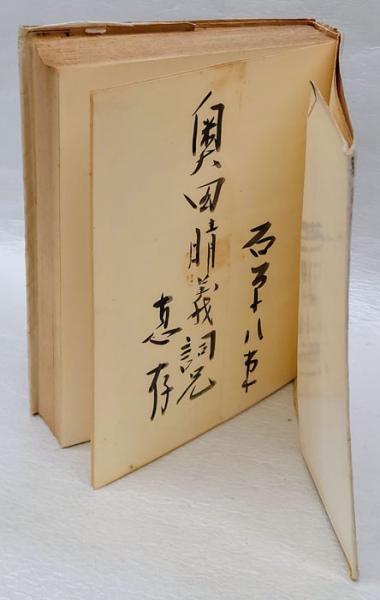 石原八束
奥田晴義詞兄
恵存